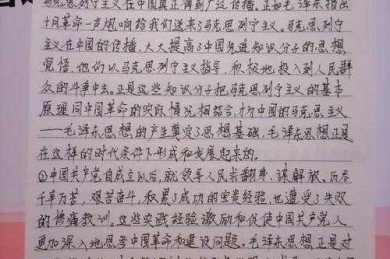 马克思列宁主义在中国真正得到广泛传播。正如毛泽东指出
十月革命一声炮响给我们送来了马克思列宁主义。马克思列宁
主义在中国的传播，大大提高了中国先进知识分子的思想
觉悟，他们以马克思列宁主义指导，积极地投入到人民群
众的斗争中去。正是这些知识分子把马克思列宁主义的基本
原理同中国革命的实际情况相结合，才为中国的马克思主义
——毛泽东思想的产生奠定了思想基础。毛泽东思想正是
在这样的时代条件下形成和发展起来的。
②中国共产党自成立以后，就领导人民求翻身，谋解放，历尽
千辛万苦，艰苦奋斗，积累了成功的宝贵经验，也遭受了失败
的惨痛教训。这些实践经验激励和促使中国共产党人
更加深入地思考中国革命和建设问题。毛泽东思想正是对